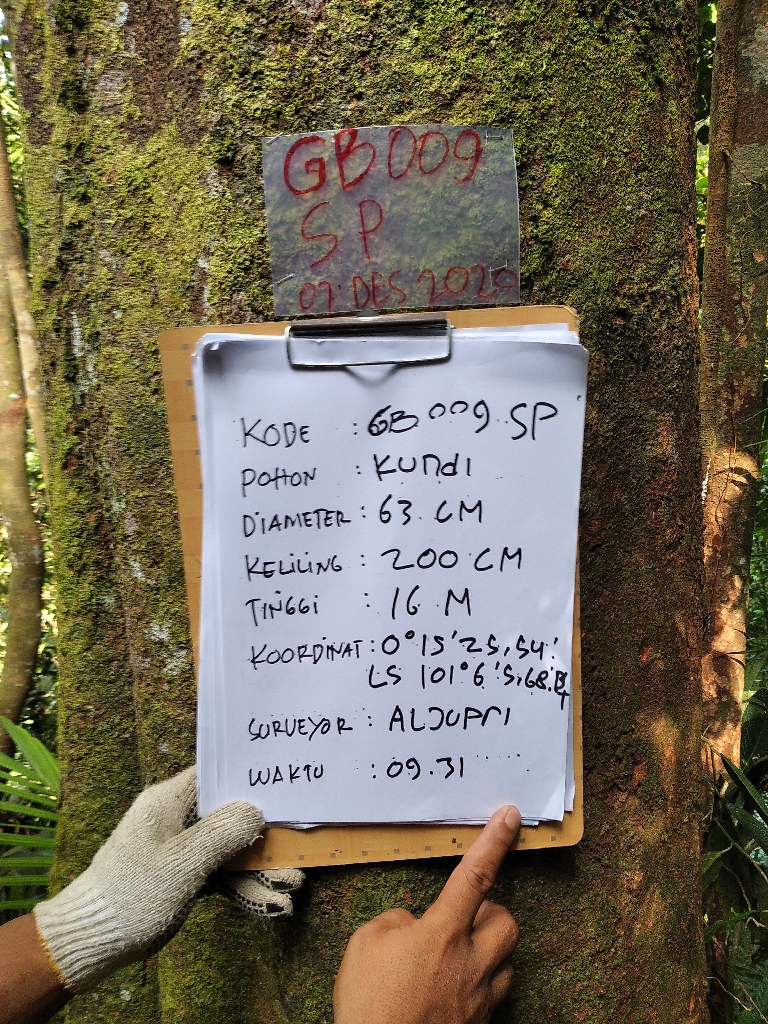 GB009
SP
07 DES 2020
KODE : GB 009 SP
POHON : KUNDI
DIAMETER : 63 CM
KELILING : 200 CM
TINGGI : 16 M
KOORDINAT : 0°15'25,54'
LS 101°6'5,68 BT
SURVEYOR : ALJUPRI
WAKTU : 09.31